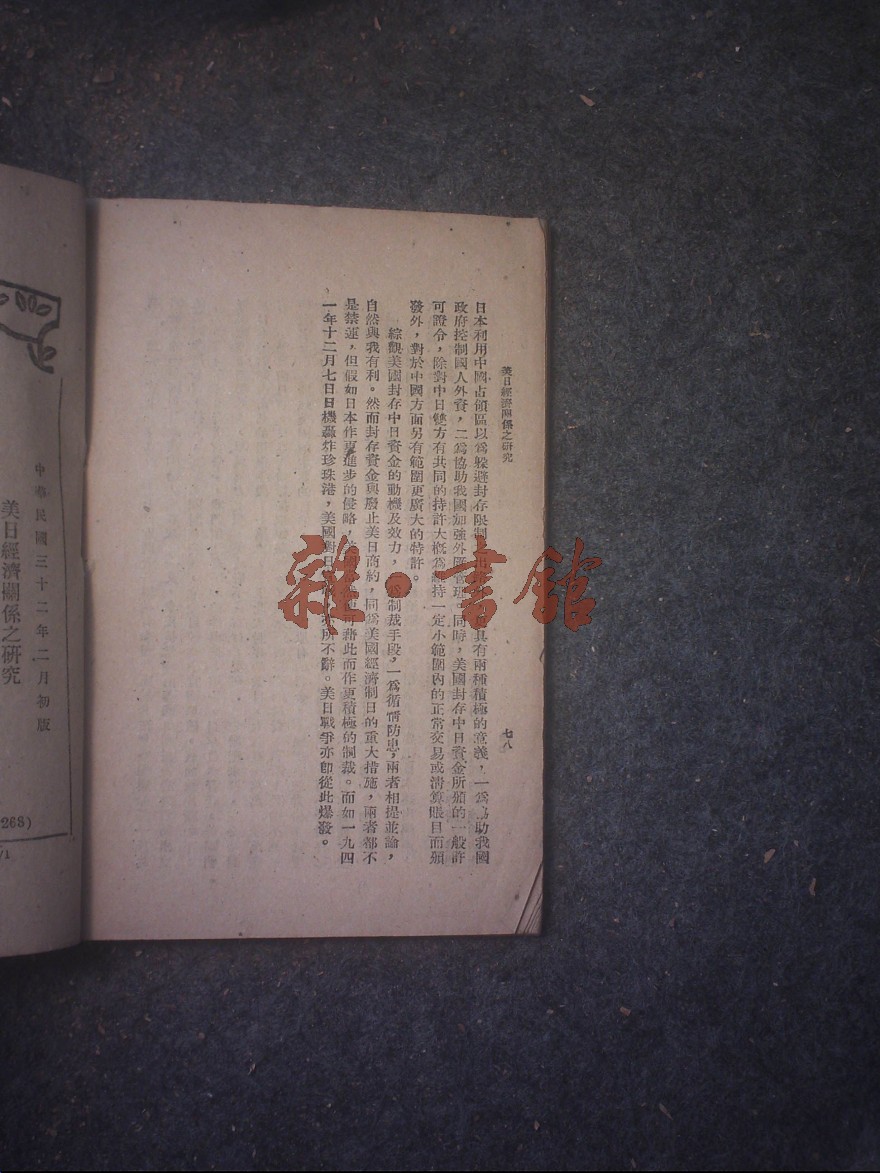 美日經濟關係之研究
七八
日本利用中國占領區以爲躱避封存限制 具有兩種積極的意義,一爲協助我國
政府控制國人外資,二爲協助我國加強外匯管理。同時,美國封存中日資金所頒的一般許
可證令,除對中日雙方有共同的特許大概爲維持一定小範圍內的正常交易或清算賬目而頒
發外,對於中國方面另有範圍更廣大的特許。
綜觀美國封存中日資金的動機及效力, 爲制裁手段,一爲循情防患,兩者相提並論,
自然與我有利。然而封存資金與廢止美日商約,同爲美國經濟制日的重大措施,兩者都不
是禁運,但假如日本作更進步的侵略, 藉此而作更積極的制裁。而如一九四
一年十二月七日日機轟炸珍珠港,美國對日 所不辭。美日戰爭亦卽從此爆發。
雜·書館
中華民國三十二年二月初版
美日經濟關係之研究
268)